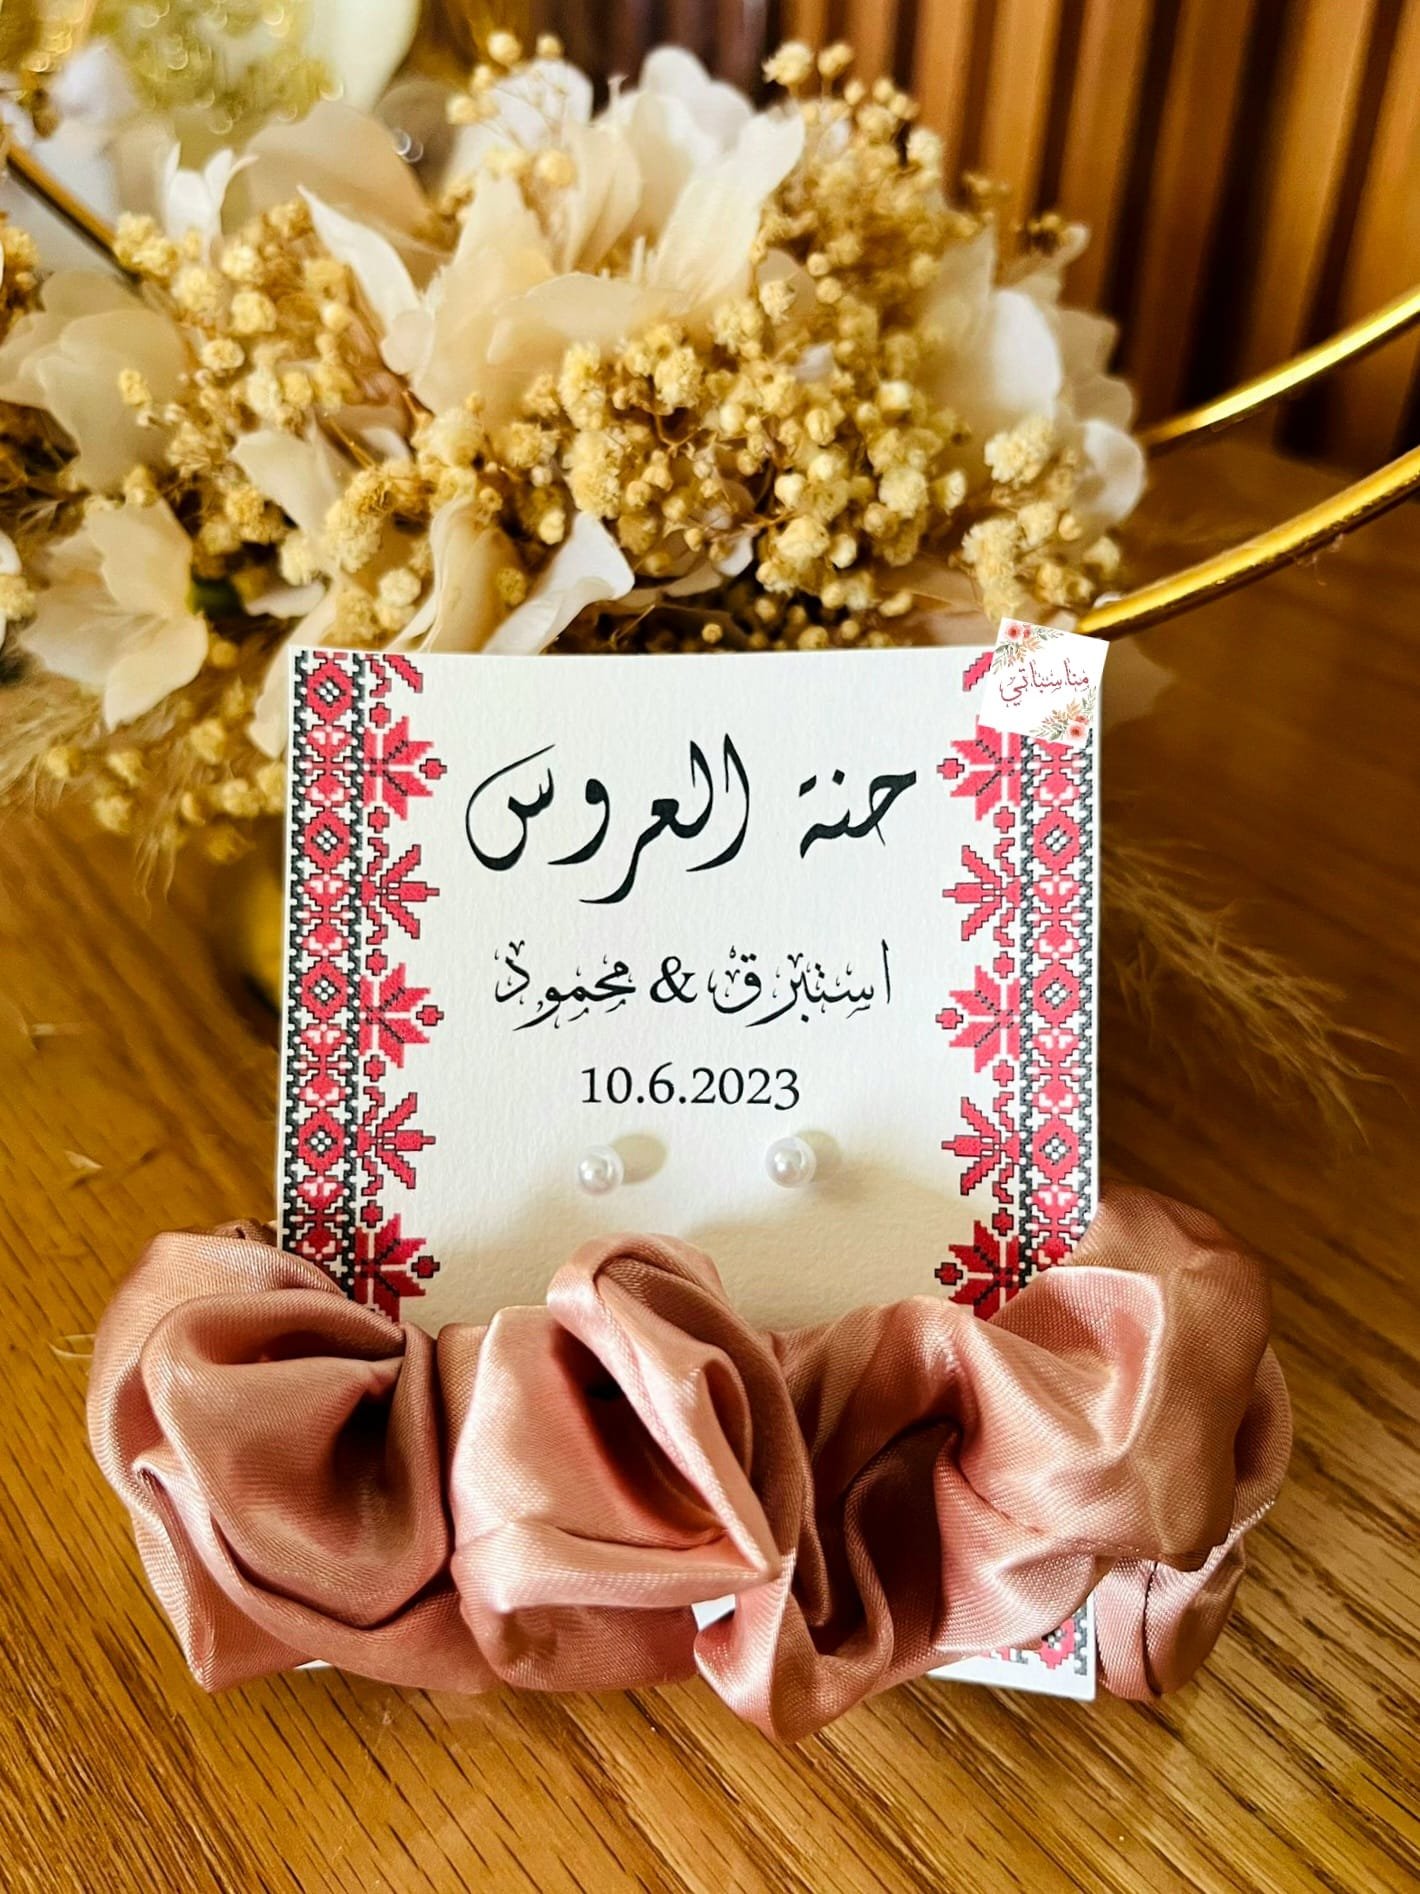 مناسباتي
حنة العروس
استبرق & محمود
10.6.2023